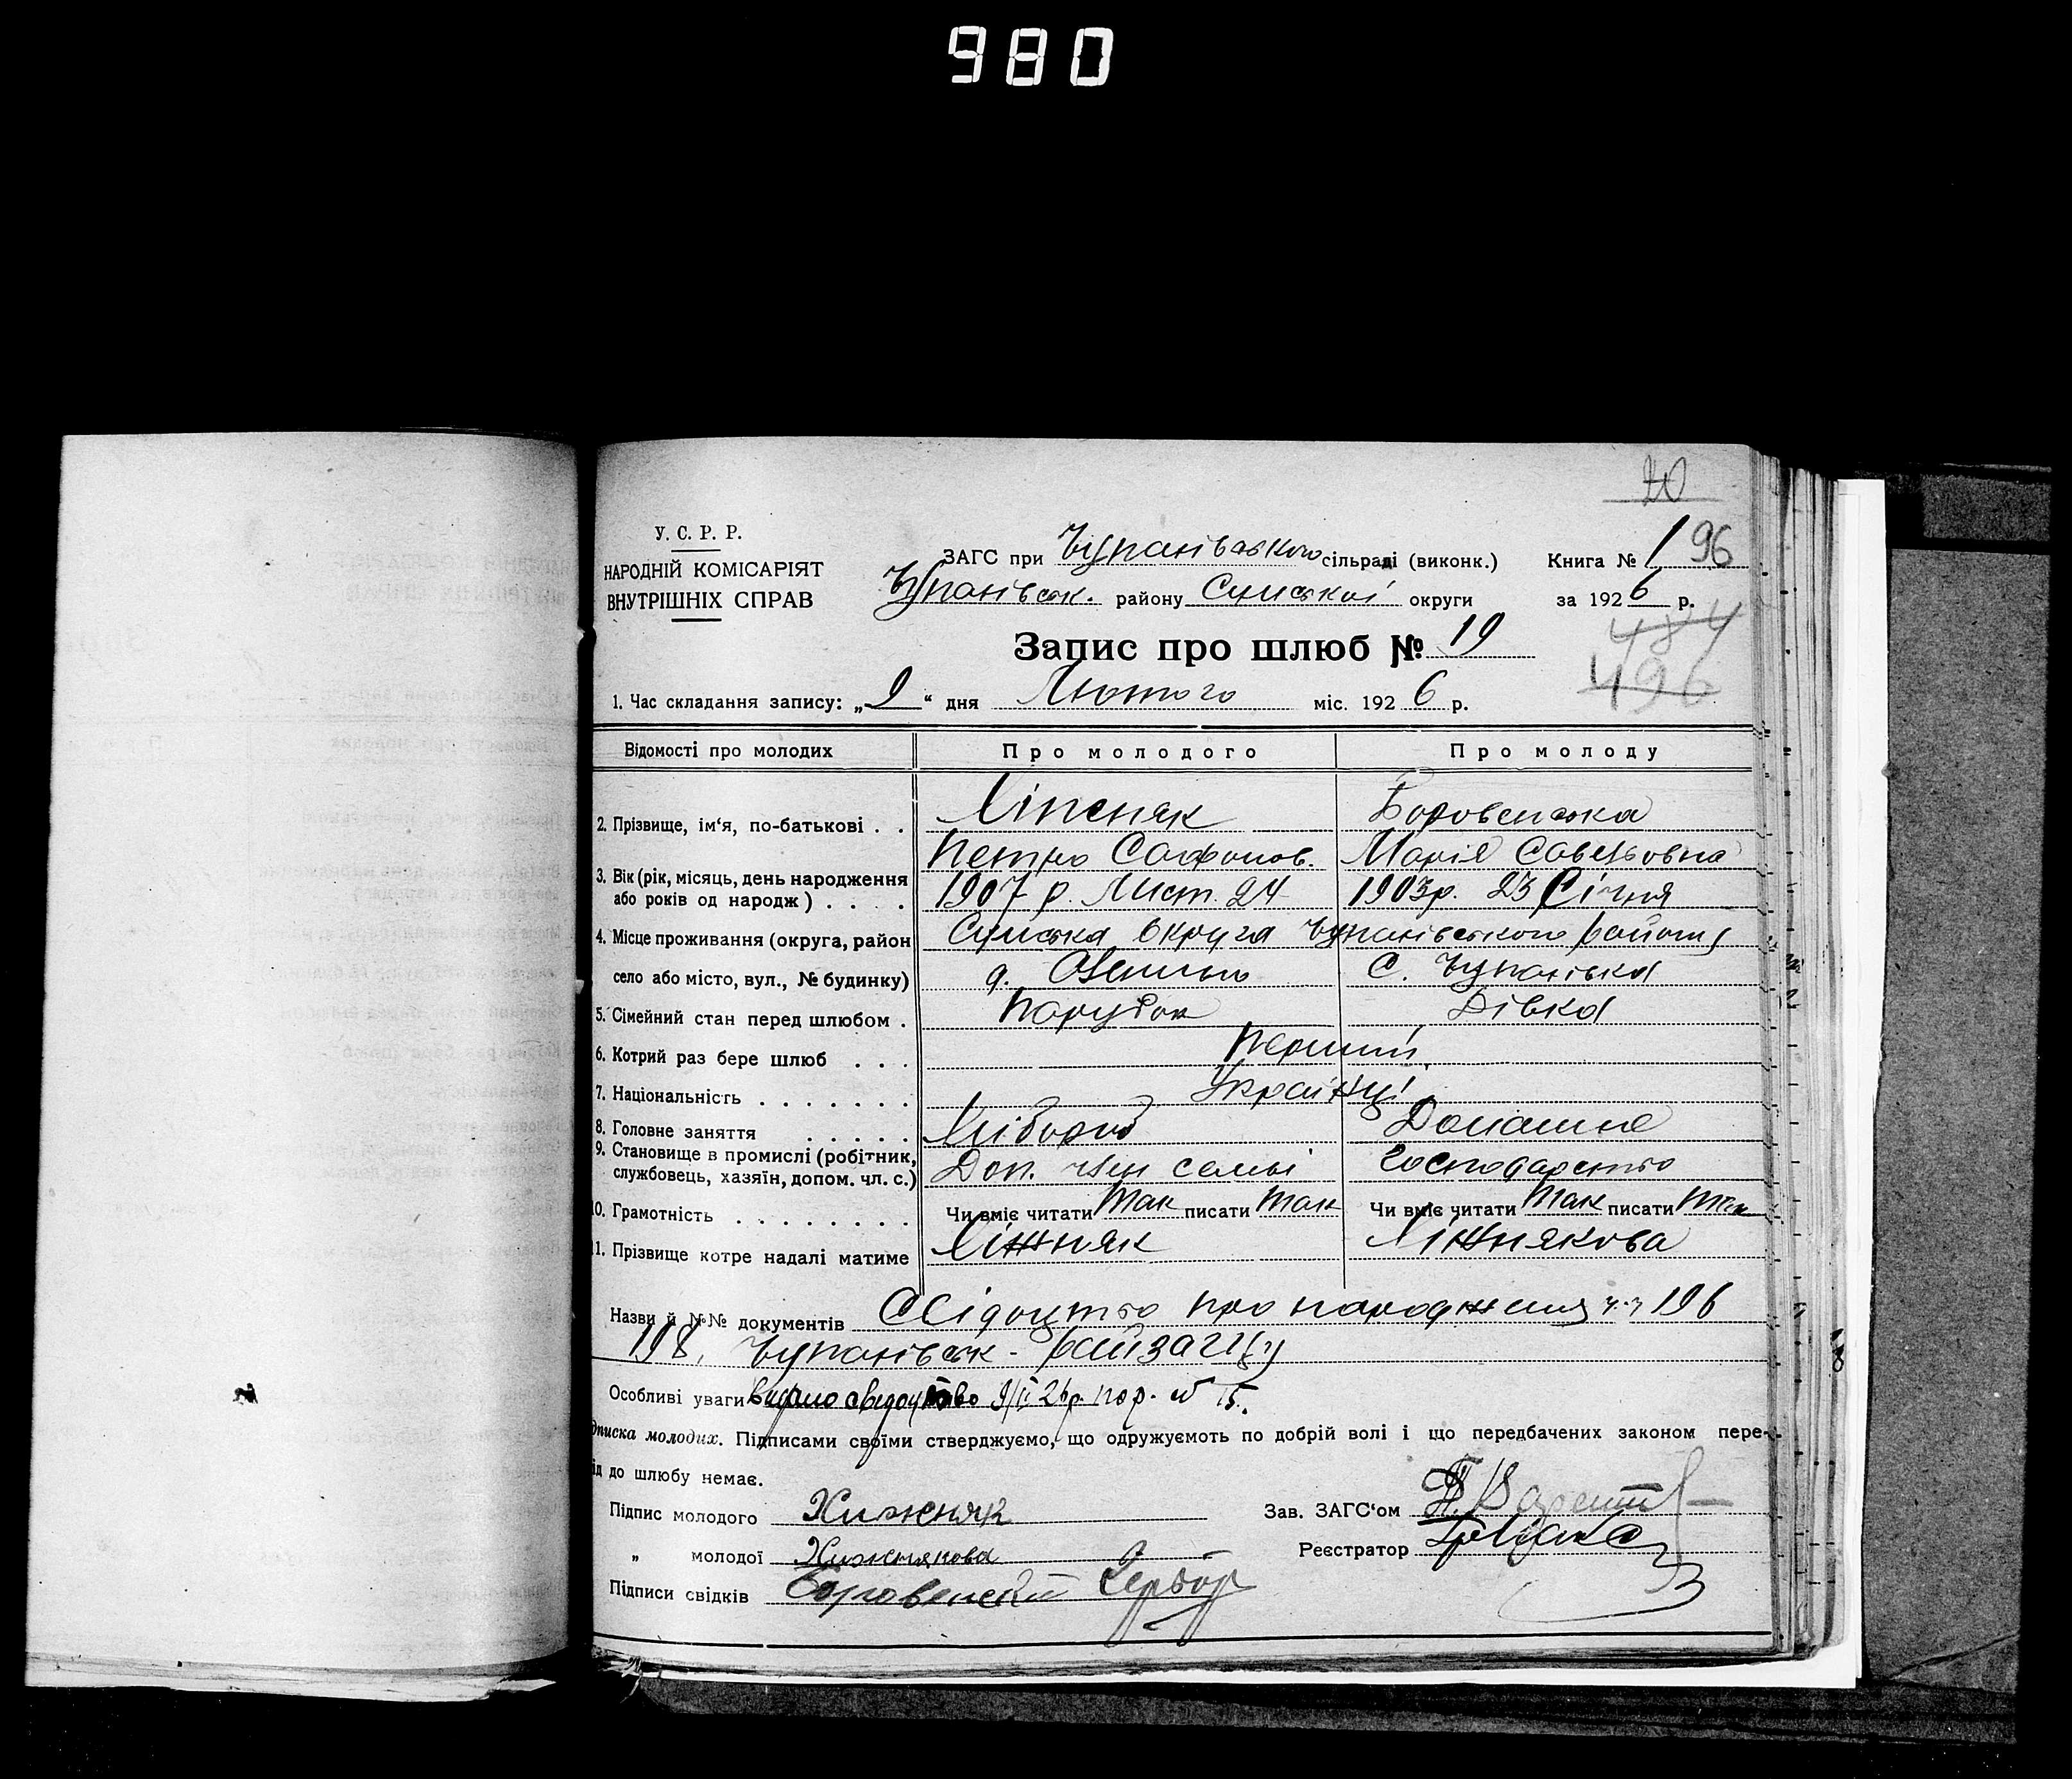 980
20
У. С. Р. Р.
НАРОДНІЙ КОМІСАРІЯТ
ВНУТРІШНІХ СПРАВ
ЗАГС при Чупахівського сільраді (виконк.)
Чупахівськ. району Сумської округи
Книга № 1 96
за 1926 р.
484
496
Запис про шлюб № 19
1. Час складання запису: „9“ дня Лютого міс. 1926 р.
Відомості про молодих Про молодого Про молоду
2. Прізвище, ім‘я, по-батькові . . Боровенська
Петро Сафонов. Марія Савельовна
3. Вік (рік, місяць, день народження
або років од народж) . . . . 1907 р. Лист. 24 1903р. 23 Січня
4. Місце проживання (округа, район Сумська округа Чупахівського району
село або місто, вул., № будинку) С. Чупахівка
5. Сімейний стан перед шлюбом . Парубок Дівка
6. Котрий раз бере шлюб . . . Перший
7. Національність . . . . . . . Українці
8. Головне заняття . . . . . Хлібороб Домашнє
9. Становище в промислі (робітник,
службовець, хазяїн, допом. чл. с.) Доп. член семьі господарство
10. Грамотність . . . . . . . . Чи вміє читати Так писати Так Чи вміє читати Так писати Так
11. Прізвище котре надалі матиме Хіжняк Хіжнякова
Назви й №№ документів Свідоцтво про народження ч.ч 196
198, Чупахівськ. райзагсу
Особливі уваги видано свідоцтво 9/II 26р. пор. № 15.
дписка молодих. Підписами своїми стверджуємо, що одружуємоть по добрій волі і що передбачених законом пере-
ід до шлюбу немає.
Підпис молодого Хижняк
Зав. ЗАГС‘ом
„ молодої Хижнякова
Реєстратор
Підписи свідків Боровенский